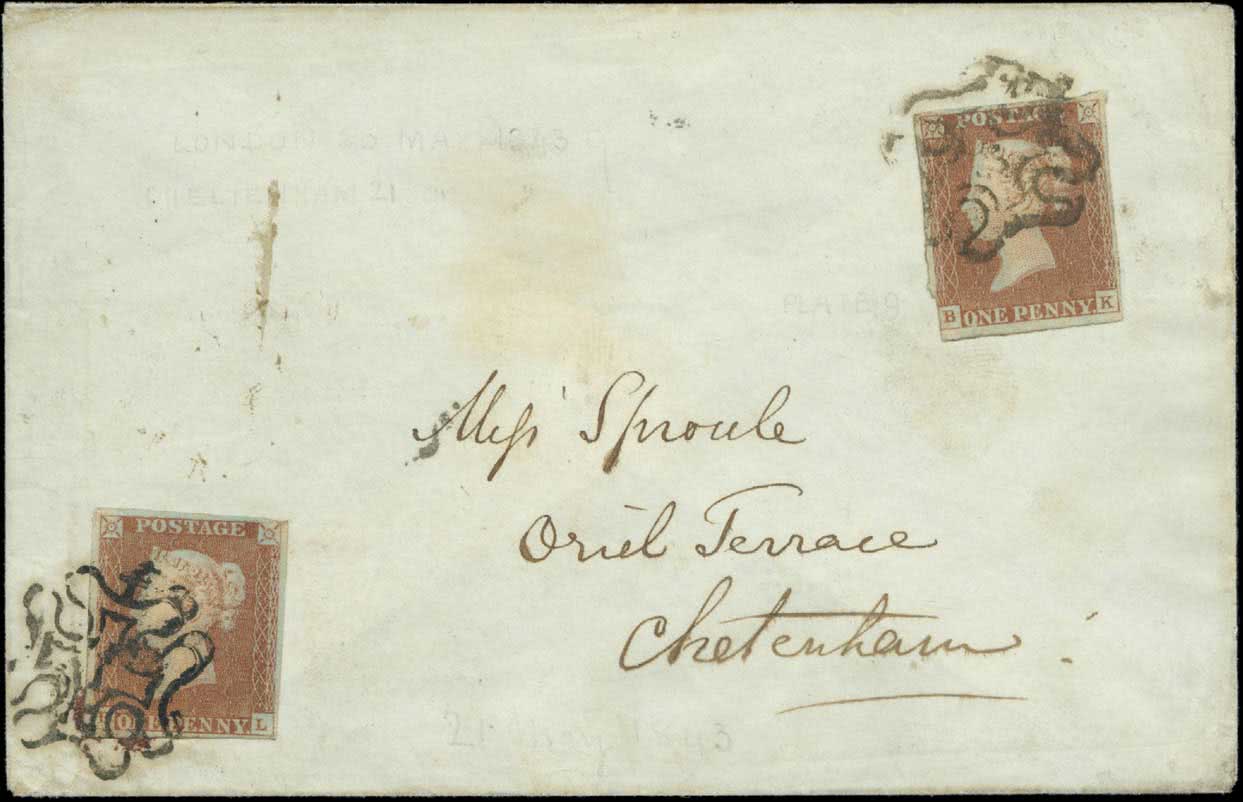 LONDON 20 MAY 1843
CHELTENHAM 21
POSTAGE
B ONE PENNY K
PLATE 9
Miss Sproule
Oriel Terrace
Cheltenham
POSTAGE
ONE PENNY L
21 May 1843